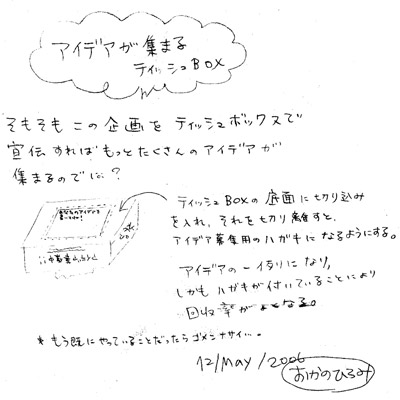 アイデアが集まる
ティッシュBOX
そもそもこの企画をティッシュボックスで
宣伝すればもっとたくさんのアイデアが
集まるのでは?
ティッシュBOXの底面に切り込み
を入れ、それを切り離すと、
アイデア募集用のハガキになるようにする。
アイデアの一例になり,
しかもハガキが付いていることにより
回収率がよくなる。
*もう既にやっていることだったらゴメンナサイ…
12/May/2006
おかのひろみ